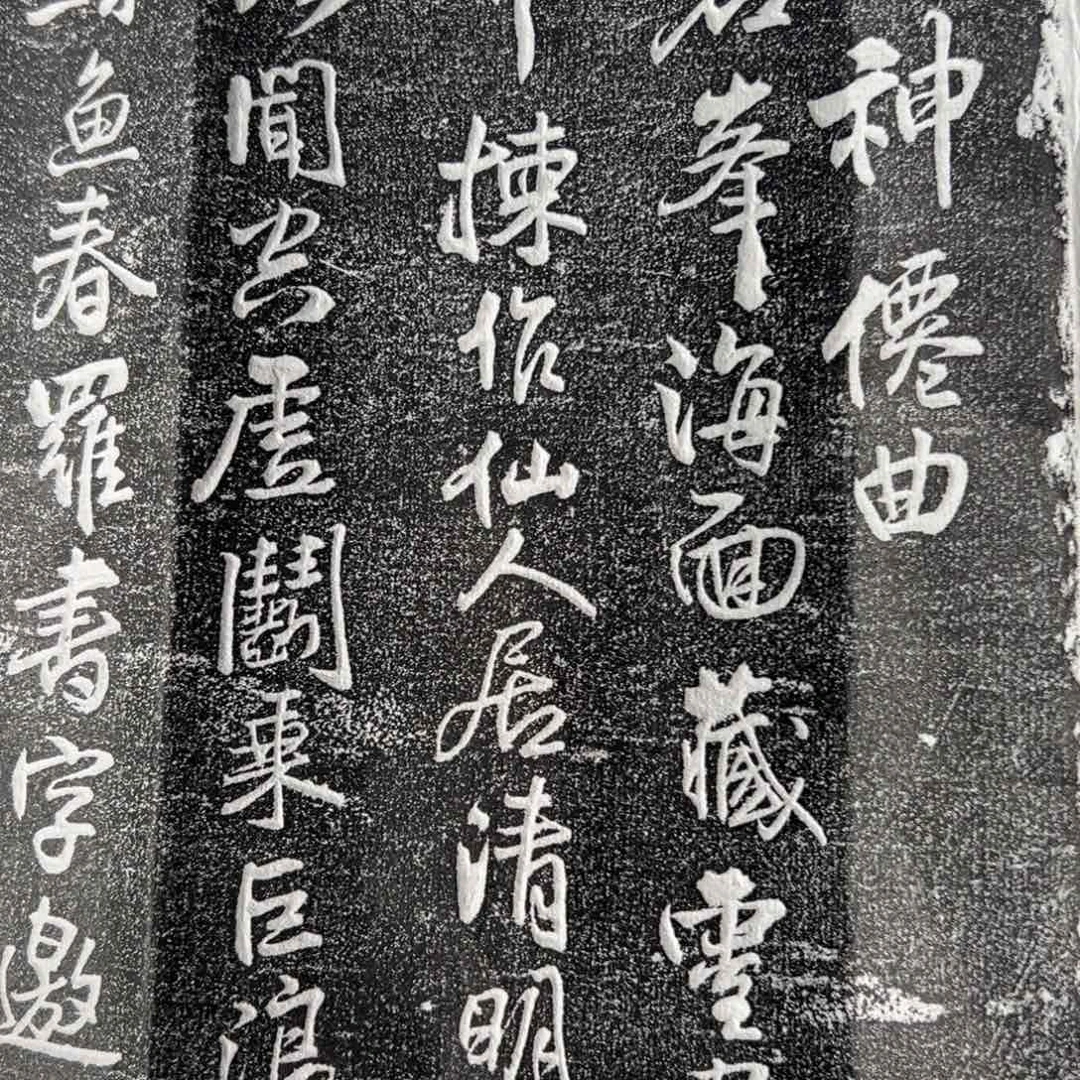 神僊曲
峯海面藏靈
揀作仙人居清明
聞空虛鬭乘巨浪
魚春羅書字邀